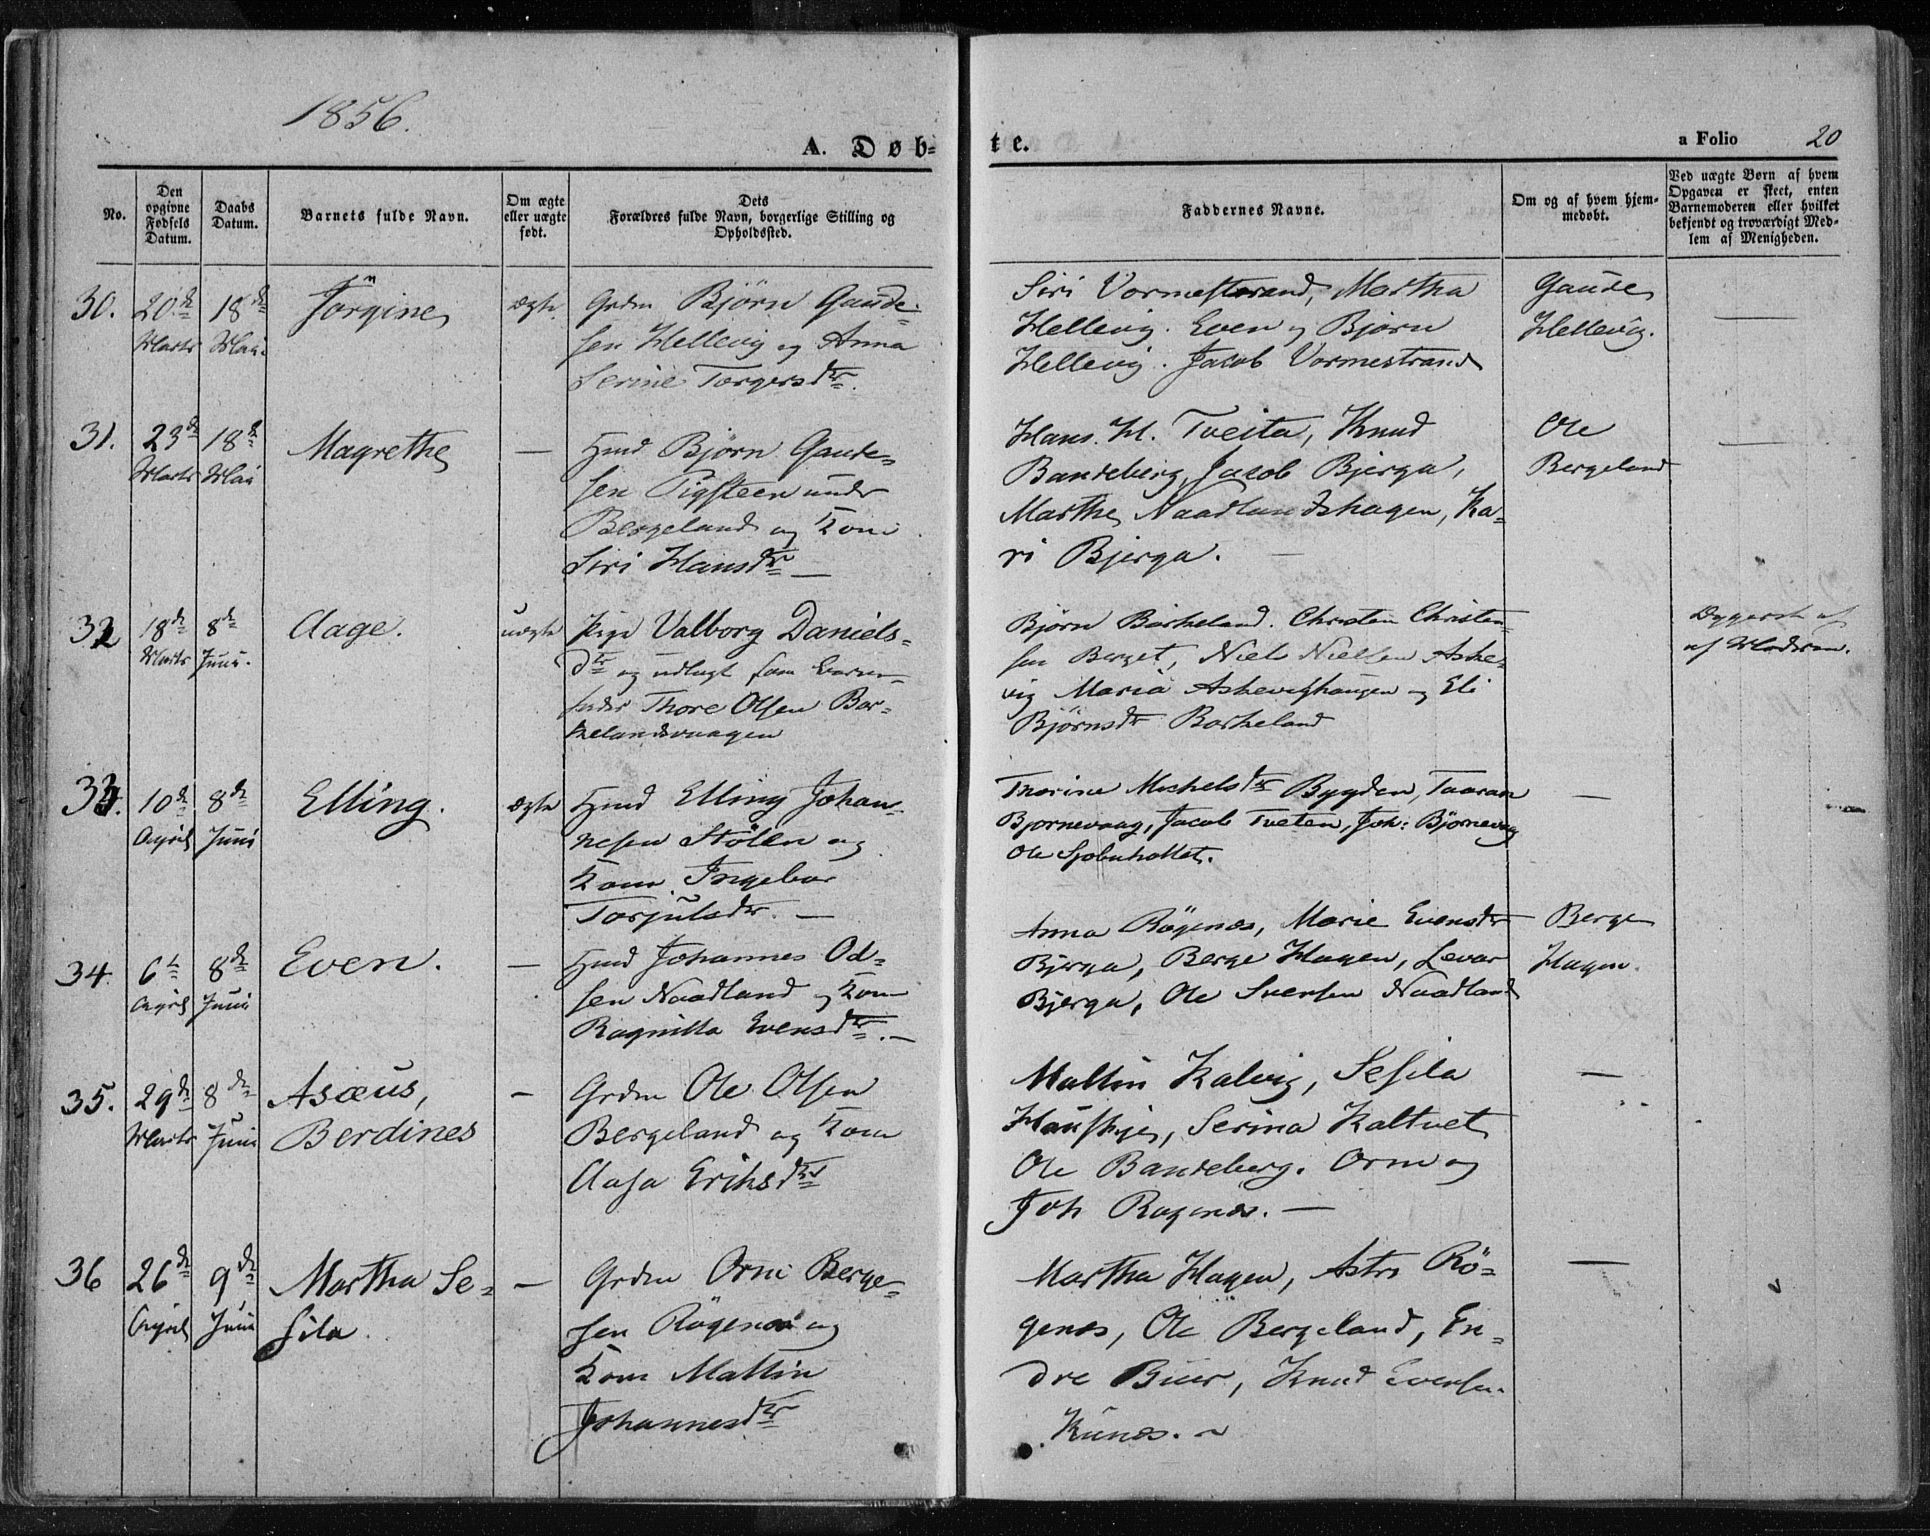 1856.
A. Døb-
te.
a Folio 20
No.
Den opgivne Fødsels Datum.
Daabs Datum.
Barnets fulde Navn.
Om ægte eller uægte født.
Dets
Forældres fulde Navn, borgerlige Stilling og
Opholdssted.
Faddernes Navne.
Om og af hvem hjem-
medøbt.
Ved uægte Børn af hvem
Opgaven er skeet, enten
Barnemoderen eller hvilket
bekjendt og troværdigt Med-
lem af Menigheden.
30. 20de Marts 18de Mai Jørgine ægte
Grdm Bjørn Gaude-
sen Hellevig og Anna
Serine Torgersdtr.
Siri Vormestrand, Martha
Hellevig. Even og Bjørn
Hellevig. Jacob Vormestrand
Gaude
Hellevig.
31. 23de Marts 18de Mai Magrethe —
Hmd Bjørn Gaude-
sen Pigsteen under
Bergeland og Kone
Siri Hansdtr —
Hans. H. Tveita, Knud
Bandeberg, Jacob Bjerga,
Marthe Naadlandshagen, Ka-
ri Bjerga. —
Ole
Bergeland
32 18de Marts 8de Juni. Aage. uægte
Pige Valborg Daniels-
dtr og udlagt som Barne-
fader Thore Olsen Bar-
kelandsvaagen
Bjørn Barkeland. Christen Christen-
sen Berget, Niels Nielsen Aske-
vig Maria Askevighaugen og Eli
Bjørnsdtr Barkeland
af Moderen.
33. 10de April 8de Juni Elling. ægte
Hmd Elling Johan-
nesen Stølen og
Kone Ingebor
Torjulsdtr. —
Thorine Michelsdtr Bygden, Taaran
Bjørnevaag, Jacob Tveten, Joh: Bjørnevaag
Ole
34. 6te April 8de Juni Even. —
Hmd Johannes Od-
sen Naadland og Kone
Ragnilla Evensdtr. —
Anna Røgenes, Marie Evensdtr
Bjerga, Berge Hagen, Levar
Bjerga, Ole Svensen Naadland
Berge
Hagen.
35. 29de Marts 8de Juni Asæus,
Berdines —
Grdm Ole Olsen
Bergeland og Kone
Aasa Eriksdtr
Mallin Kalvig, Sesila
Hauskje, Serina Kaltvet
Ole Bandeberg. Orm og
Joh Røgenes. —
36 26de April 9de Juni Martha Se-
sila. —
Grdm Orm Berge-
sen Røgenes og
Kone Mallin
Johannesdtr
Martha Hagen, Astri Rø-
genes, Ole Bergeland, En-
dre Buer, Knud Evensen
Kunes. —